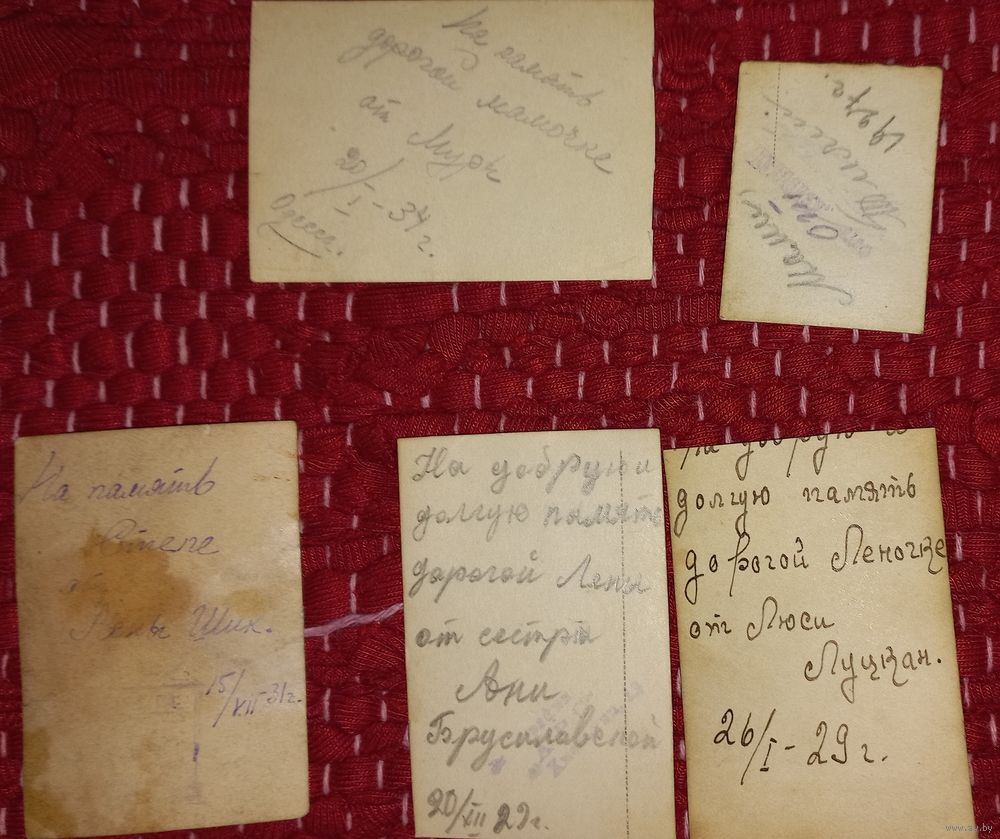 На память
дорогой мамочке
от Муры
20/I-34 г.
Одесса.
Мани
От
1927г.
На память
Степе
от
Шик.
15/VII 31г.
На добрую и
долгую память
дорогой Лени
от сестры
Ани
Бруславской
20/XII 29г.
На добрую и
долгую память
дорогой Леночке
от Люси
Луцкан.
26/I-29 г.
www.ay.by